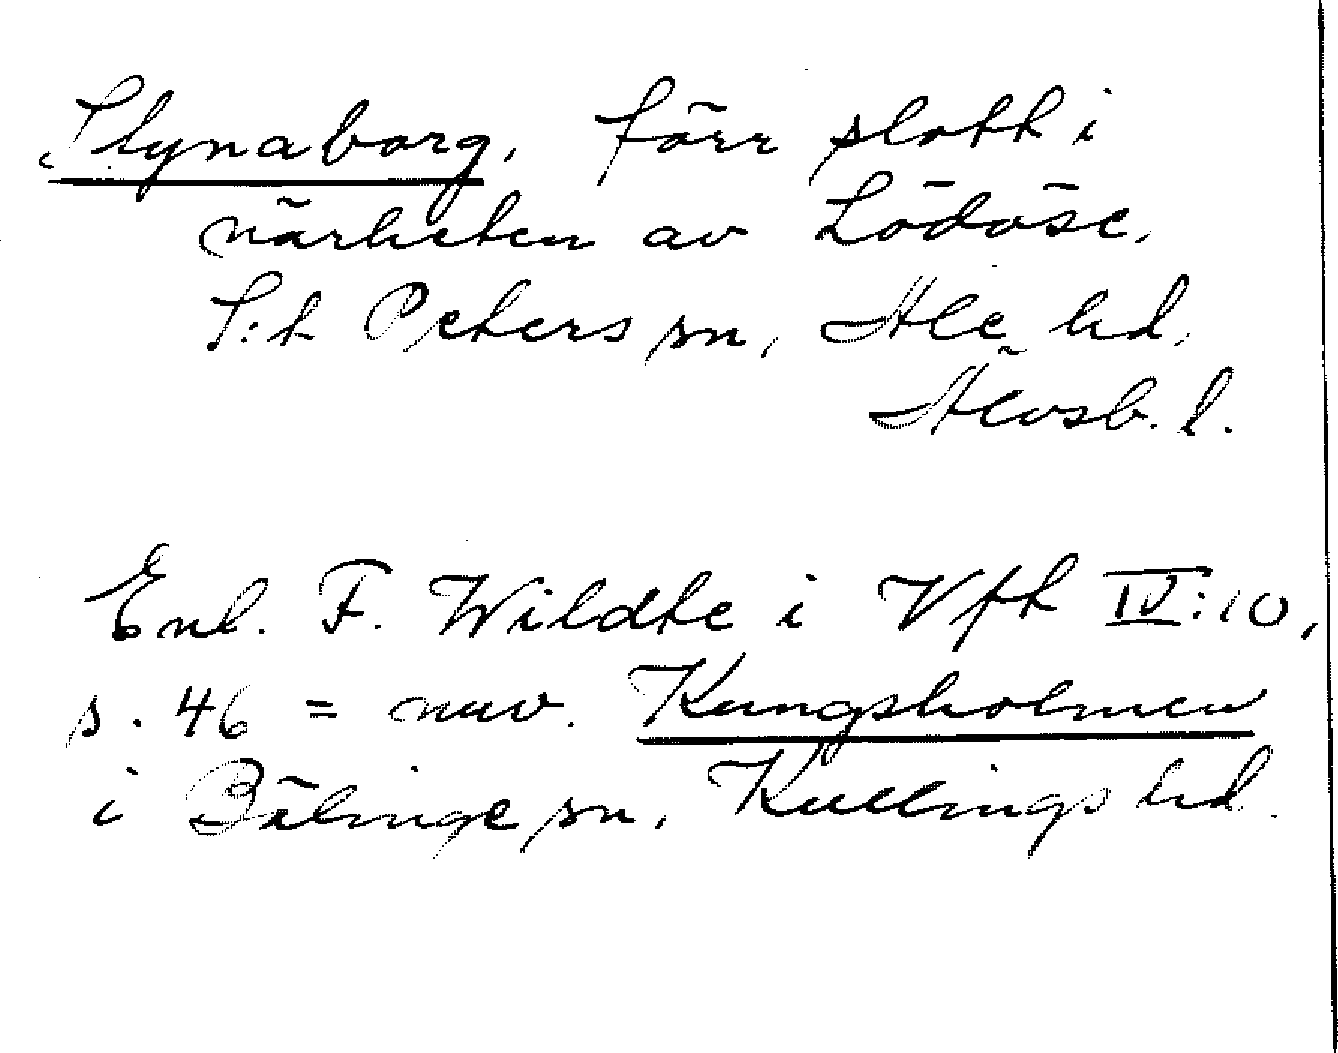 Slynaborg, förr slott i
närheten av Lödöse,
S:t Peters sn, Ale hd,
Älvsb. l.
Enl. F. Wildte i Vft IV:10,
s. 46 = nuv. Kungsholmen
i Bälinge sn, Kullings hd.